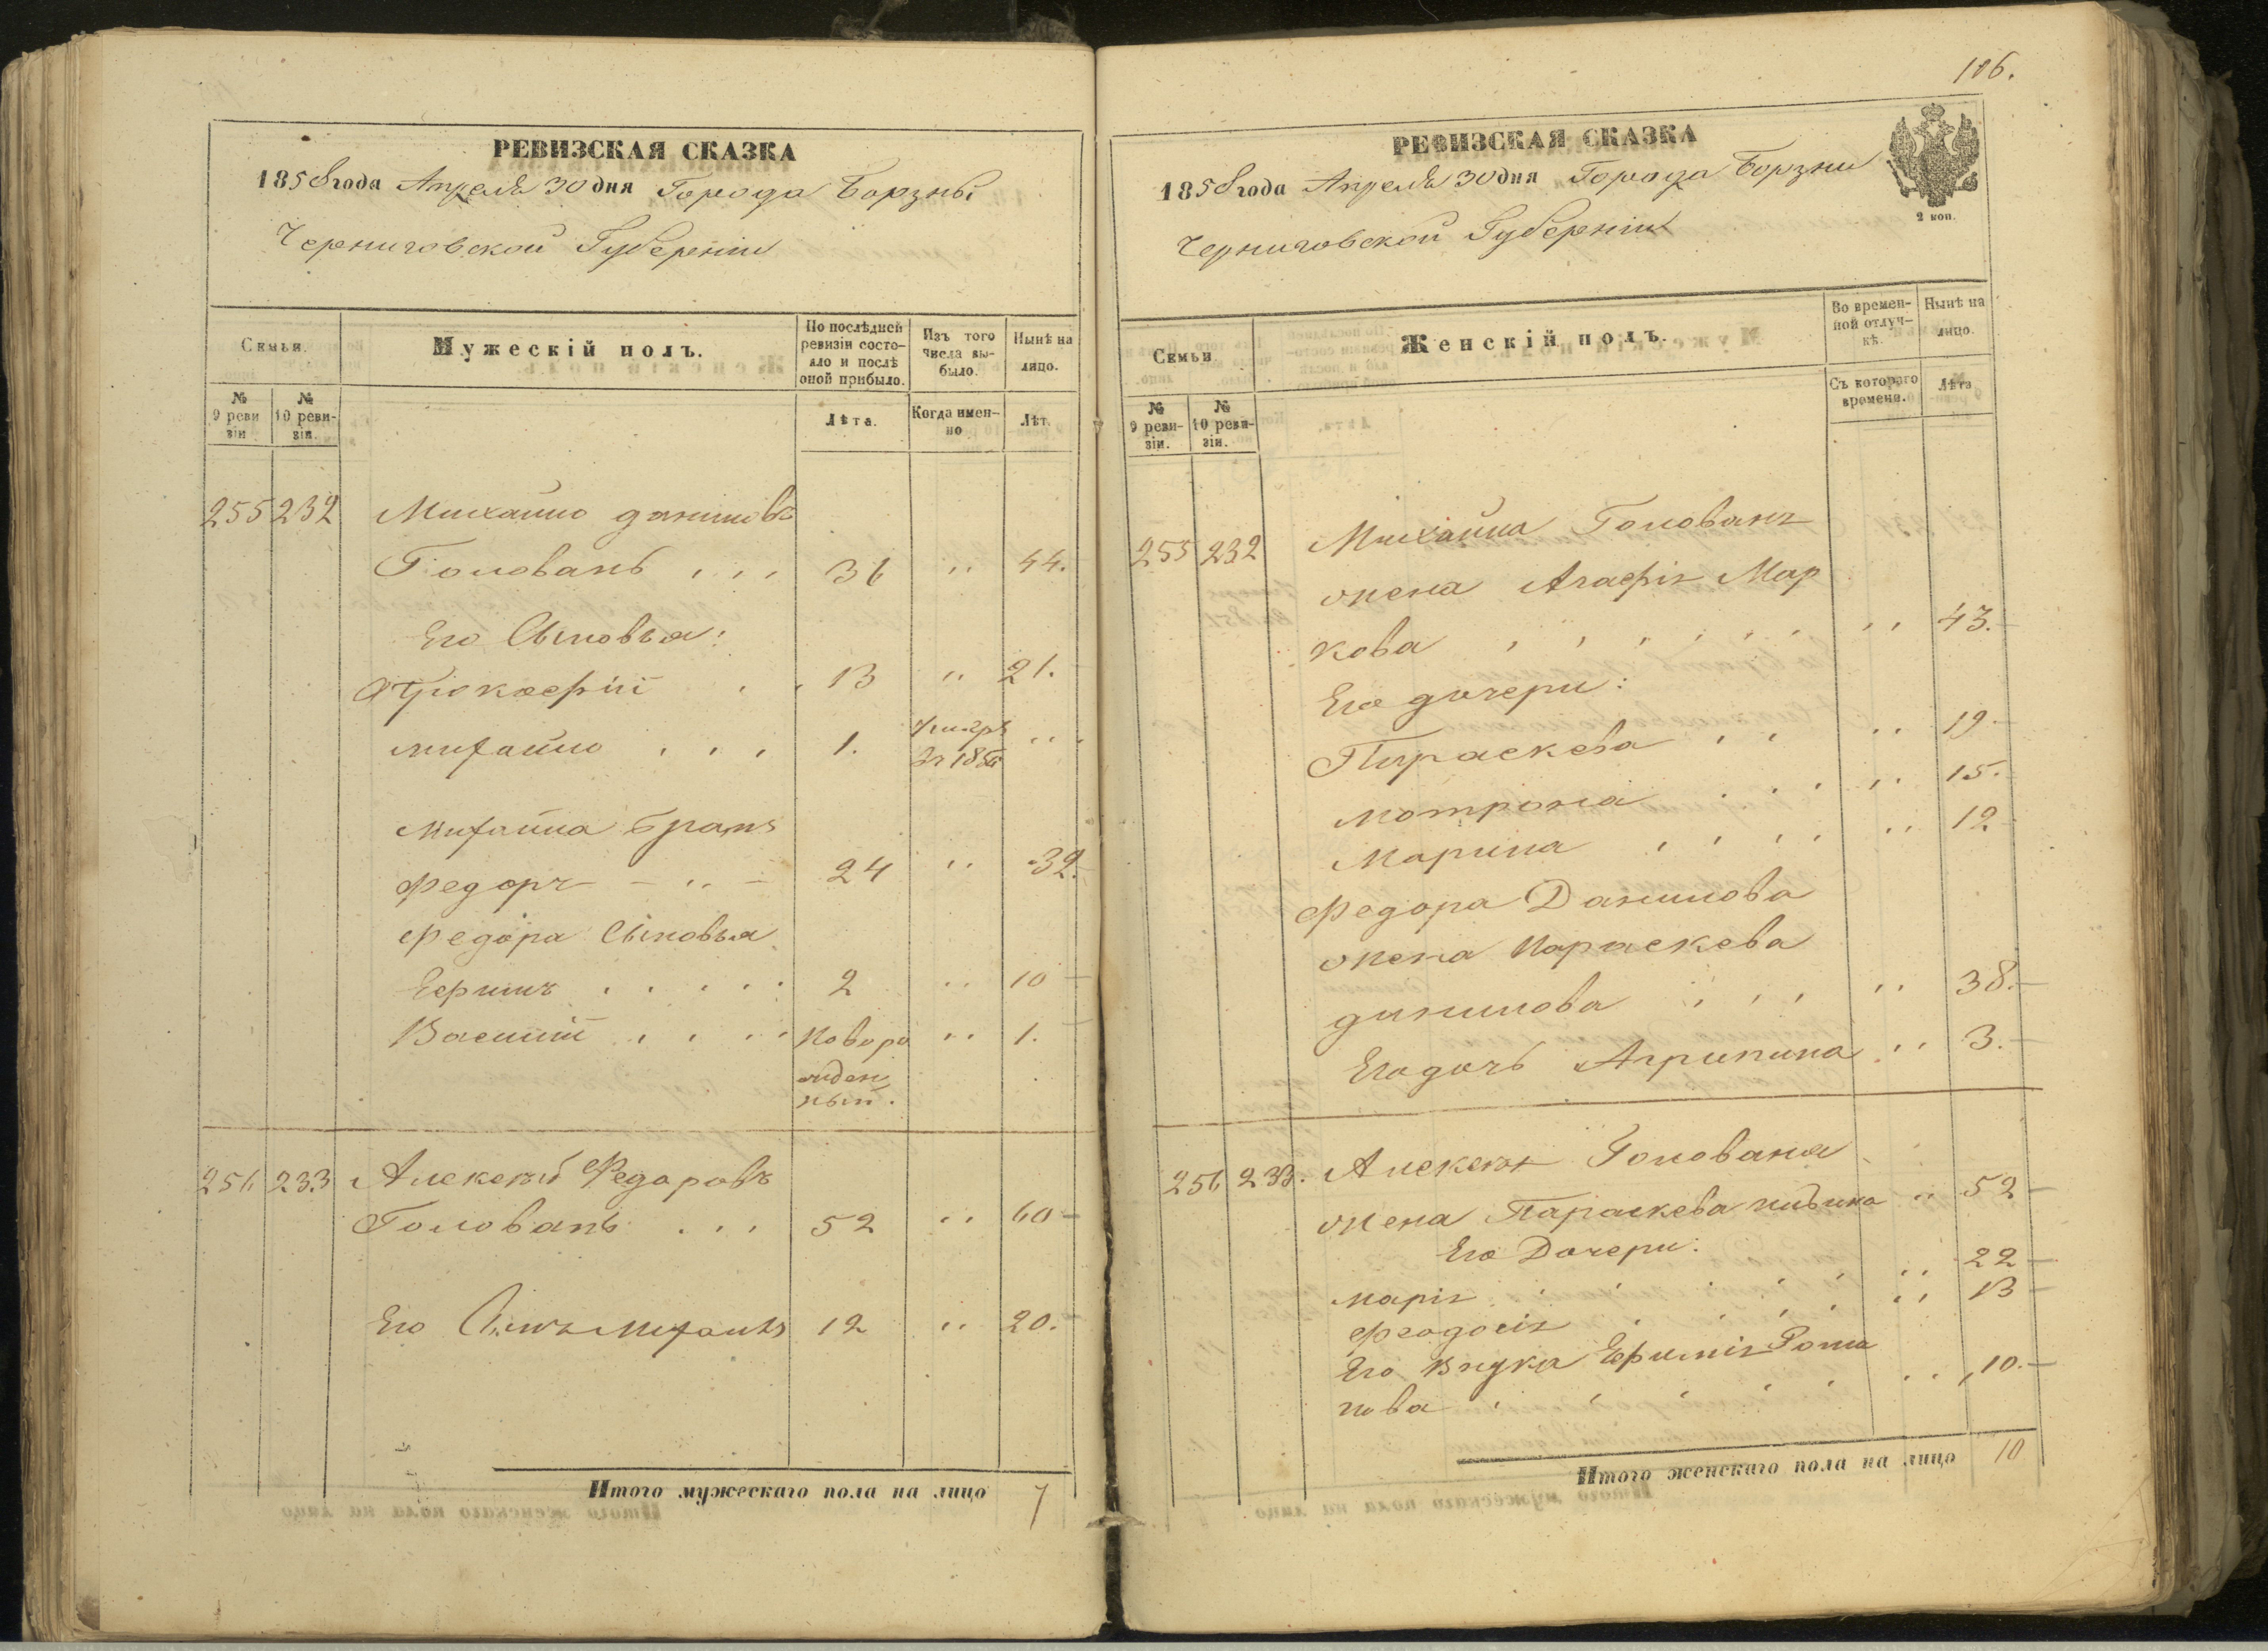 РЕВИЗСКАЯ СКАЗКА
1858 года Апреля 30 дня Города Борзны
Черниговской Губерніи
Семьи.
Мужескій полъ.
По послѣдней ревизіи состояло и послѣ оной прибыло.
Изъ того числа выбыло.
Нынѣ на лицо.
№ 9 ревизіи
№ 10 ревизіи.
Лѣта.
Когда именно
Лѣт.
255 232 Михайло Даниловъ
Голованъ 36 " 44.
Его Сыновья:
Прокофій 13 " 21.
Михайло 1. "
въ 185
Михайла братъ
Федоръ 24 " 32.
Федора Сыновья
Ефимъ 2 " 10
Василій Новоро " 1.
жден
ный.
256 233 Алексѣй Федоровъ
Голованъ 52 " 60
Его Сынъ Михаилъ 12 " 20.
Итого мужескаго пола на лицо 7
116.
РЕВИЗСКАЯ СКАЗКА
2 коп.
1858 года Апреля 30 дня Города Борзни
Черниговской Губерніи
Семьи
Женскій полъ.
Во временной отлучкѣ.
Нынѣ на лицо.
№ 9 ревизіи.
№ 10 ревизіи.
Съ котораго времени.
Лѣта
255 232 Михайла Голованъ
жена Агафія Мар
кова " 43.
Его дочери:
Параскева " 19
Мотрона " 15.
Марина " 12
Федора Данилова
жена Параскева
Данилова " 38.
Его дочь Агрипина " 3.
256 233. Алексѣя Голована
жена Параскева " 52
Его Дочери:
Марія " 22
Феодосія " 13
Его Внука Ефимія Рома
нова " 10.
Итого женскаго пола на лицо 10